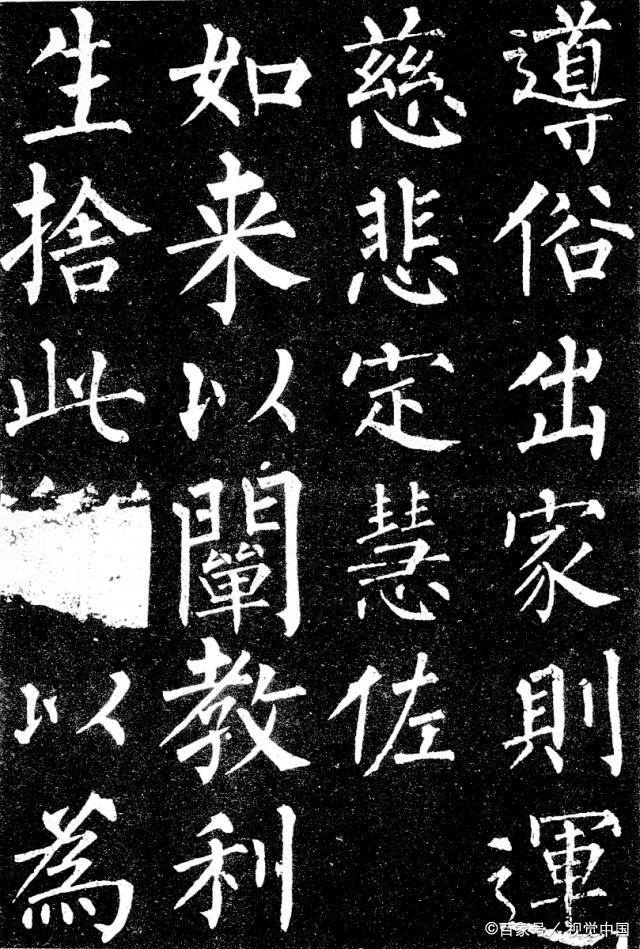 導俗出家則運
慈悲定慧佐
如来以闡教利
生捨此
以為
©百家号/视觉中国